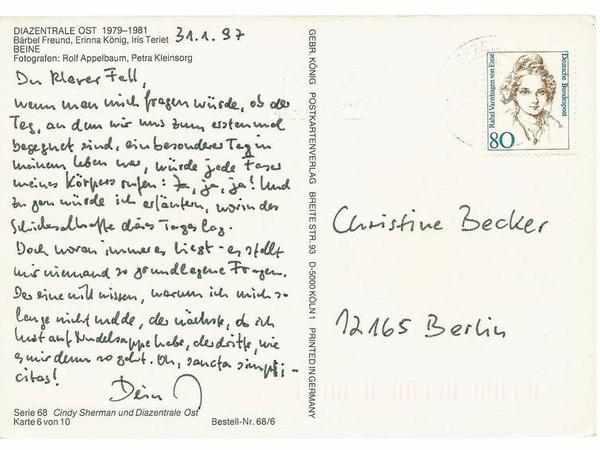 DIAZENTRALE OST 1979–1981
Bärbel Freund, Erinna König, Iris Teriet
BEINE
Fotografen: Rolf Appelbaum, Petra Kleinsorg
31.1.97
Du klarer Fall,
wenn man mich fragen würde, ob der
Tag, an dem wir uns zum ersten mal
begegnet sind, ein besonderer Tag in
meinem Leben war, würde jede Faser
meines Körpers rufen: Ja, ja, ja! Und
zu gern würde ich erläutern, worin das
Schicksalhafte dieses Tages lag.
Doch woran immer es liegt - es stellt
mir niemand so grundlegene Fragen.
Der eine will wissen, warum ich mich so
lange nicht melde, der nächste, ob ich
Lust auf Nudelsuppe habe, der dritte, wie
es mir denn so geht. Oh, sancta simpli-
citas!
Dein
Serie 68 Cindy Sherman und Diazentrale Ost
Karte 6 von 10 Bestell-Nr. 68/6
GEBR. KÖNIG POSTKARTENVERLAG BREITE STR. 93 D-5000 KÖLN 1 PRINTED IN GERMANY
Rahel Varnhagen von Ense
80
Deutsche Bundespost
Christine Becker
12165 Berlin